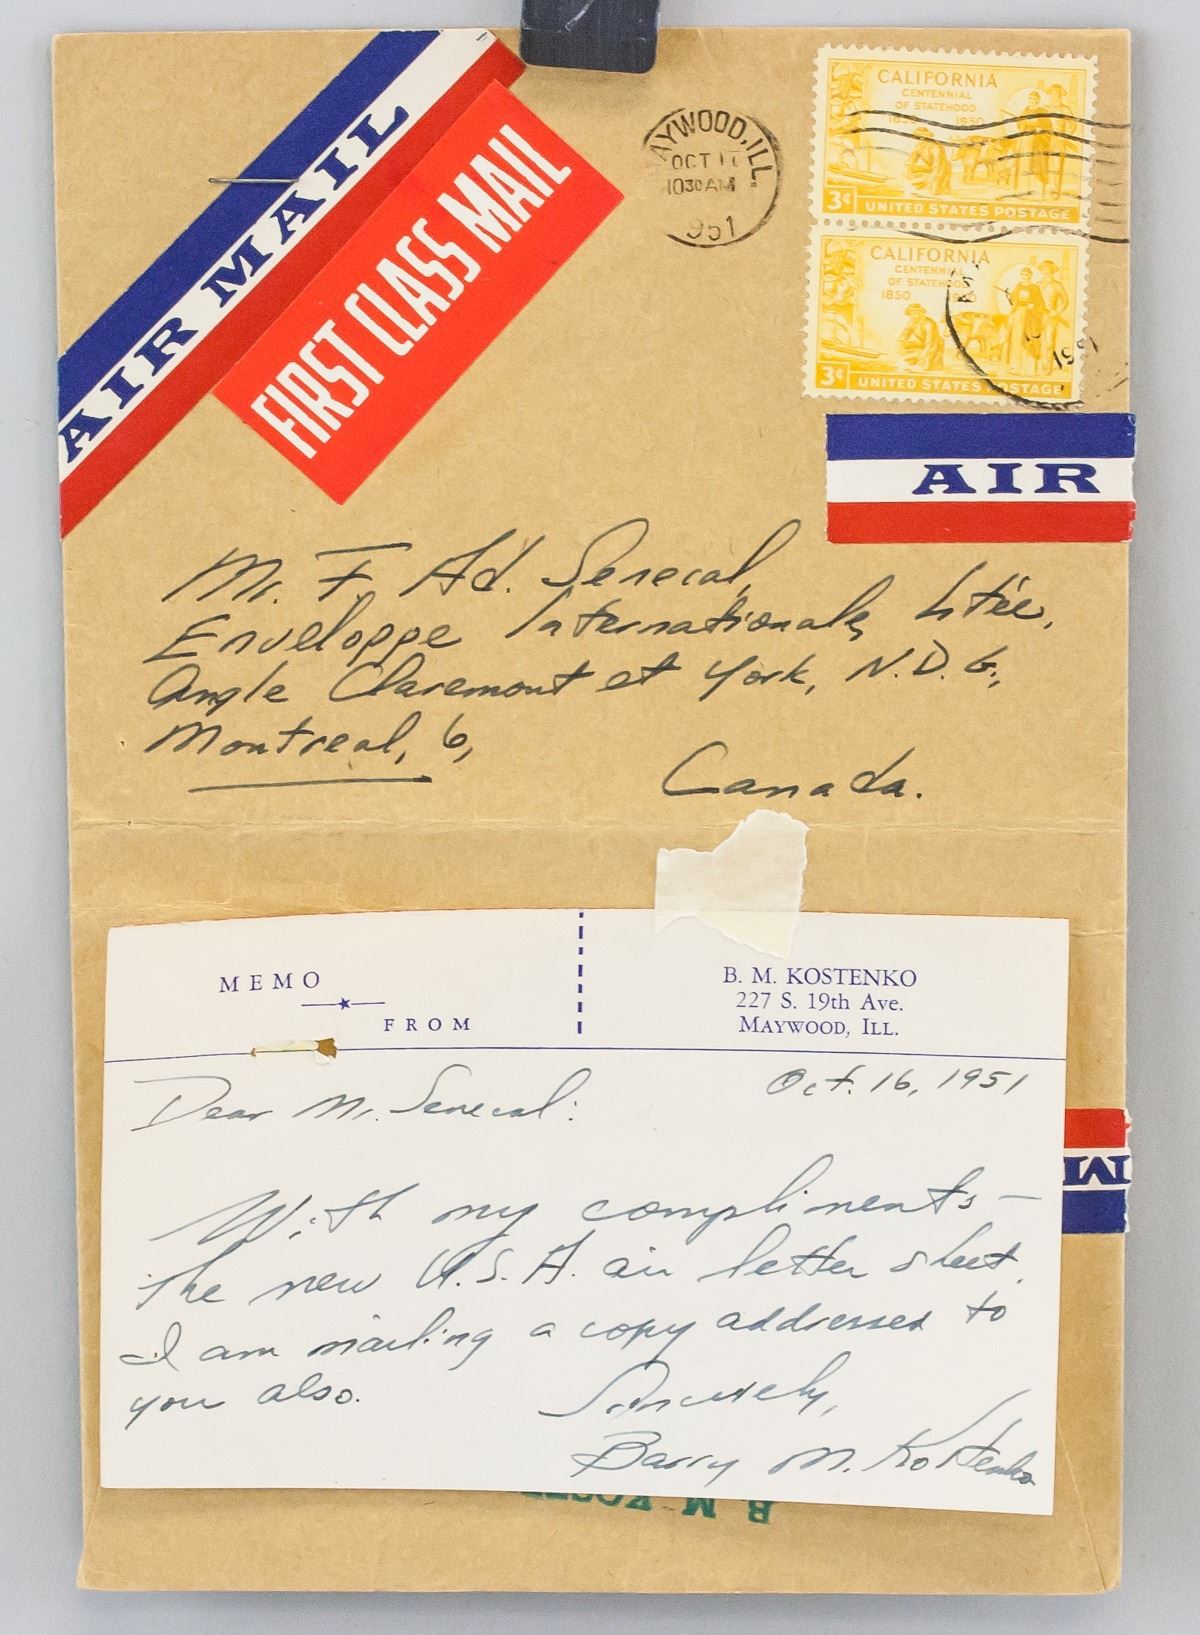 AIR MAIL
FIRST CLASS MAIL
MAYWOOD, ILL.
OCT 17
10 30 AM
1951
CALIFORNIA
CENTENNIAL
OF STATEHOOD
1850 1950
3¢ UNITED STATES POSTAGE
CALIFORNIA
CENTENNIAL
OF STATEHOOD
1850 1950
3¢ UNITED STATES POSTAGE
AIR
Mr. F. Ad. Senecal,
Enveloppe Internationale, Ltée,
Angle Claremont et York, N.D.G.,
Montreal, 6,
Canada.
MEMO
FROM
B. M. KOSTENKO
227 S. 19th Ave.
MAYWOOD, ILL.
Oct. 16, 1951
Dear Mr. Senecal:
With my compliments –
the new U.S.A. air letter sheet.
I am mailing a copy addressed to
you also.
Sincerely,
Barry M. Kostenko
B M KOSTE